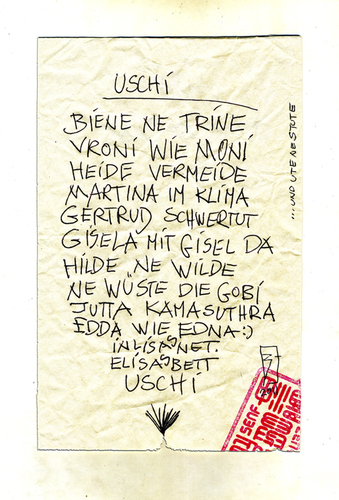 USCHI
BIENE NE TRINE
VRONI WIE MONI
HEIDE VERMEIDE
MARTINA IM KLIMA
GERTRUD SCHWERTUT
GISELA MIT GISEL DA
HILDE "NE WILDE
NE WÜSTE DIE GOBI
JUTTA KAMASUTHRA
EDDA WIE EDNA:)
IN LISAS NET.
ELISASBETT
USCHI
...UND UTE NE STUTE
SENF